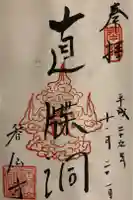 奉拝
平成二十九年
十一月二十一日
直牒洞
香仙寺